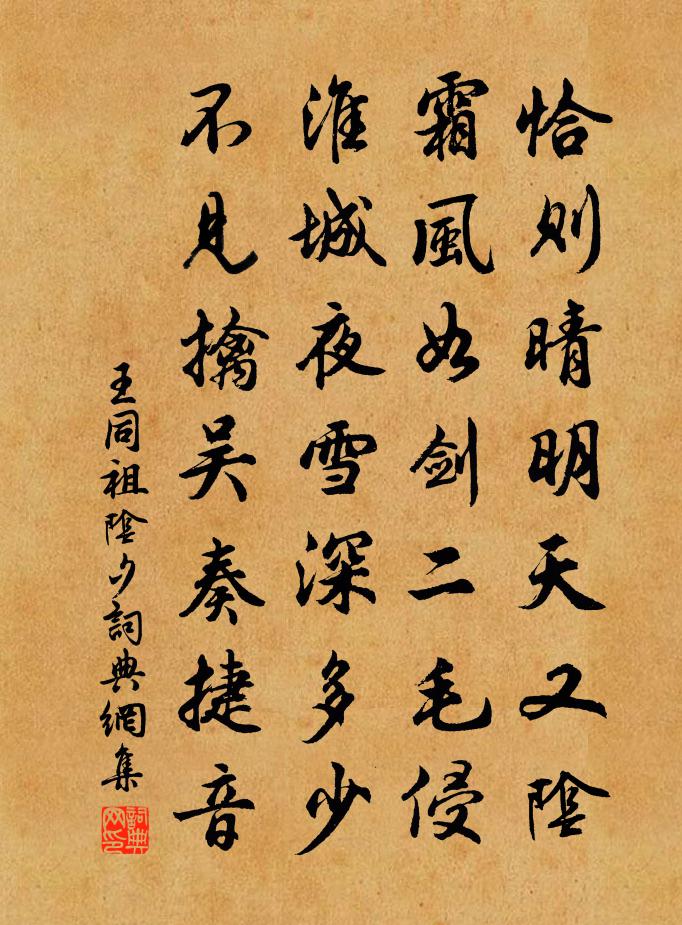 恰則晴明天又陰
霜風如剑二毛侵
淮城夜雪深多少
不見擒吴奏捷音
王同祖陰夕詞典網集
詞典网印